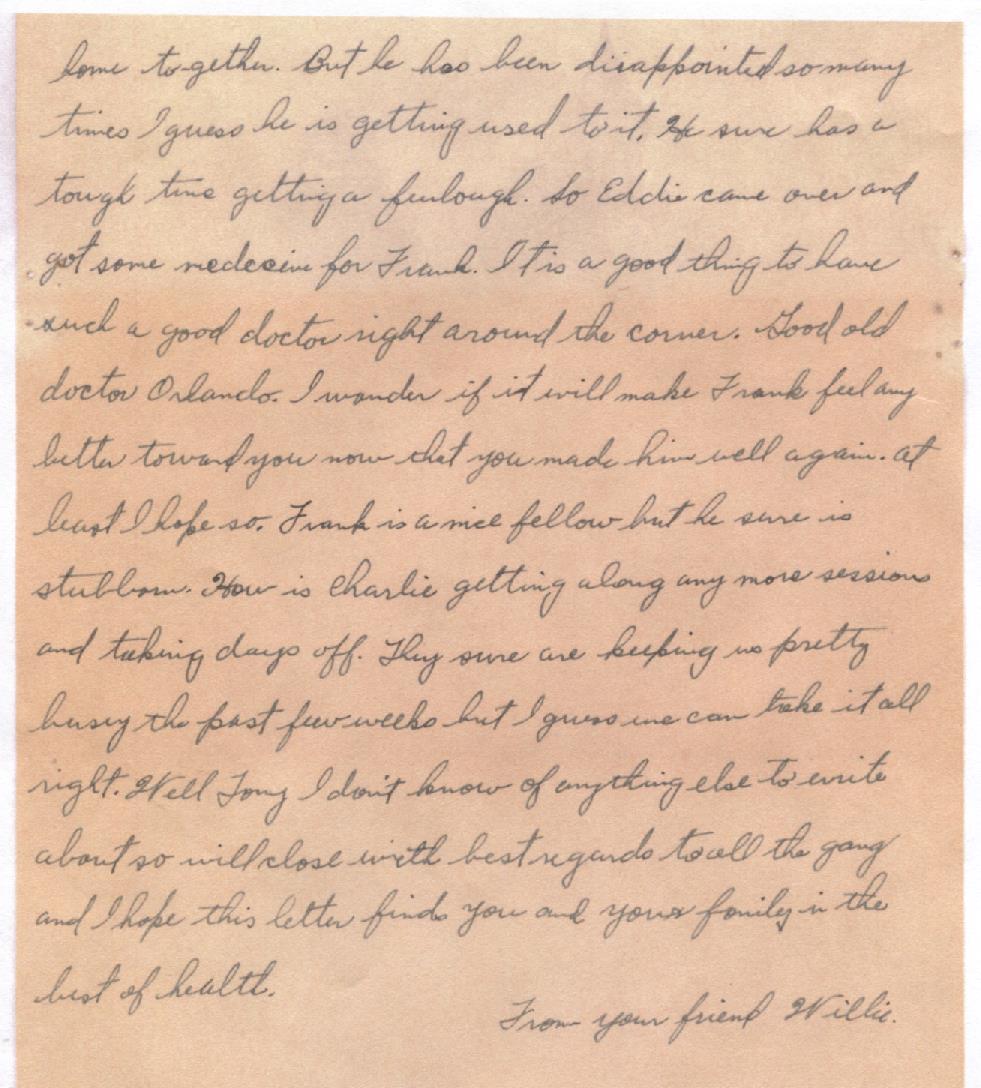 home to-gether. But he has been disappointed so many
times I guess he is getting used to it. He sure has a
tough time getting a furlough. So Eddie came over and
got some medecine for Frank. It is a good thing to have
such a good doctor right around the corner. Good old
doctor Orlando. I wonder if it will make Frank feel any
better toward you now that you made him well again. At
least I hope so. Frank is a nice fellow but he sure is
stubborn. How is Charlie getting along any more sessions
and taking days off. They sure are keeping us pretty
busy the past few weeks but I guess we can take it all
right. Well Tony I don't know of anything else to write
about so will close with best regards to all the gang
and I hope this letter finds you and your family in the
best of health.
From your friend Willie.